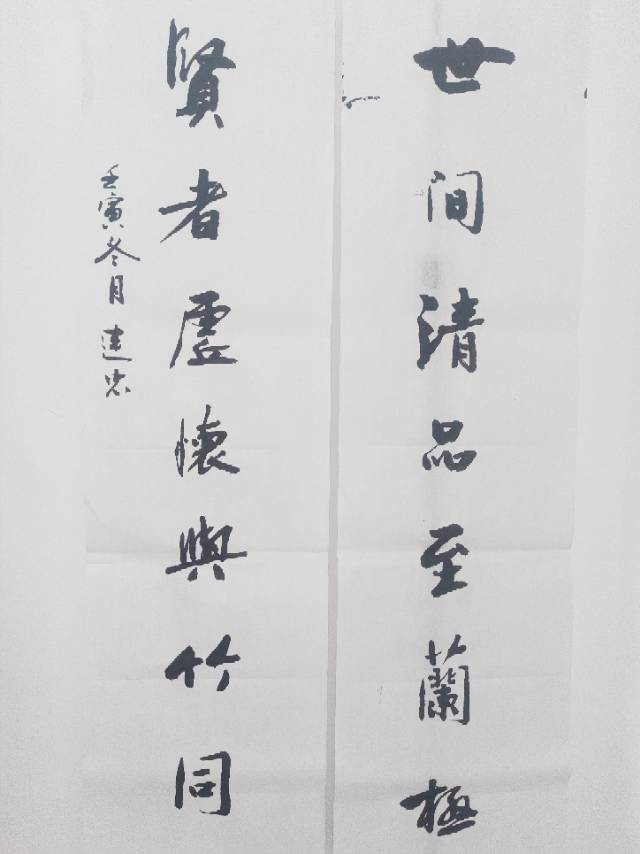 世間清品至蘭極
賢者虛懷與竹同
壬寅冬月建忠